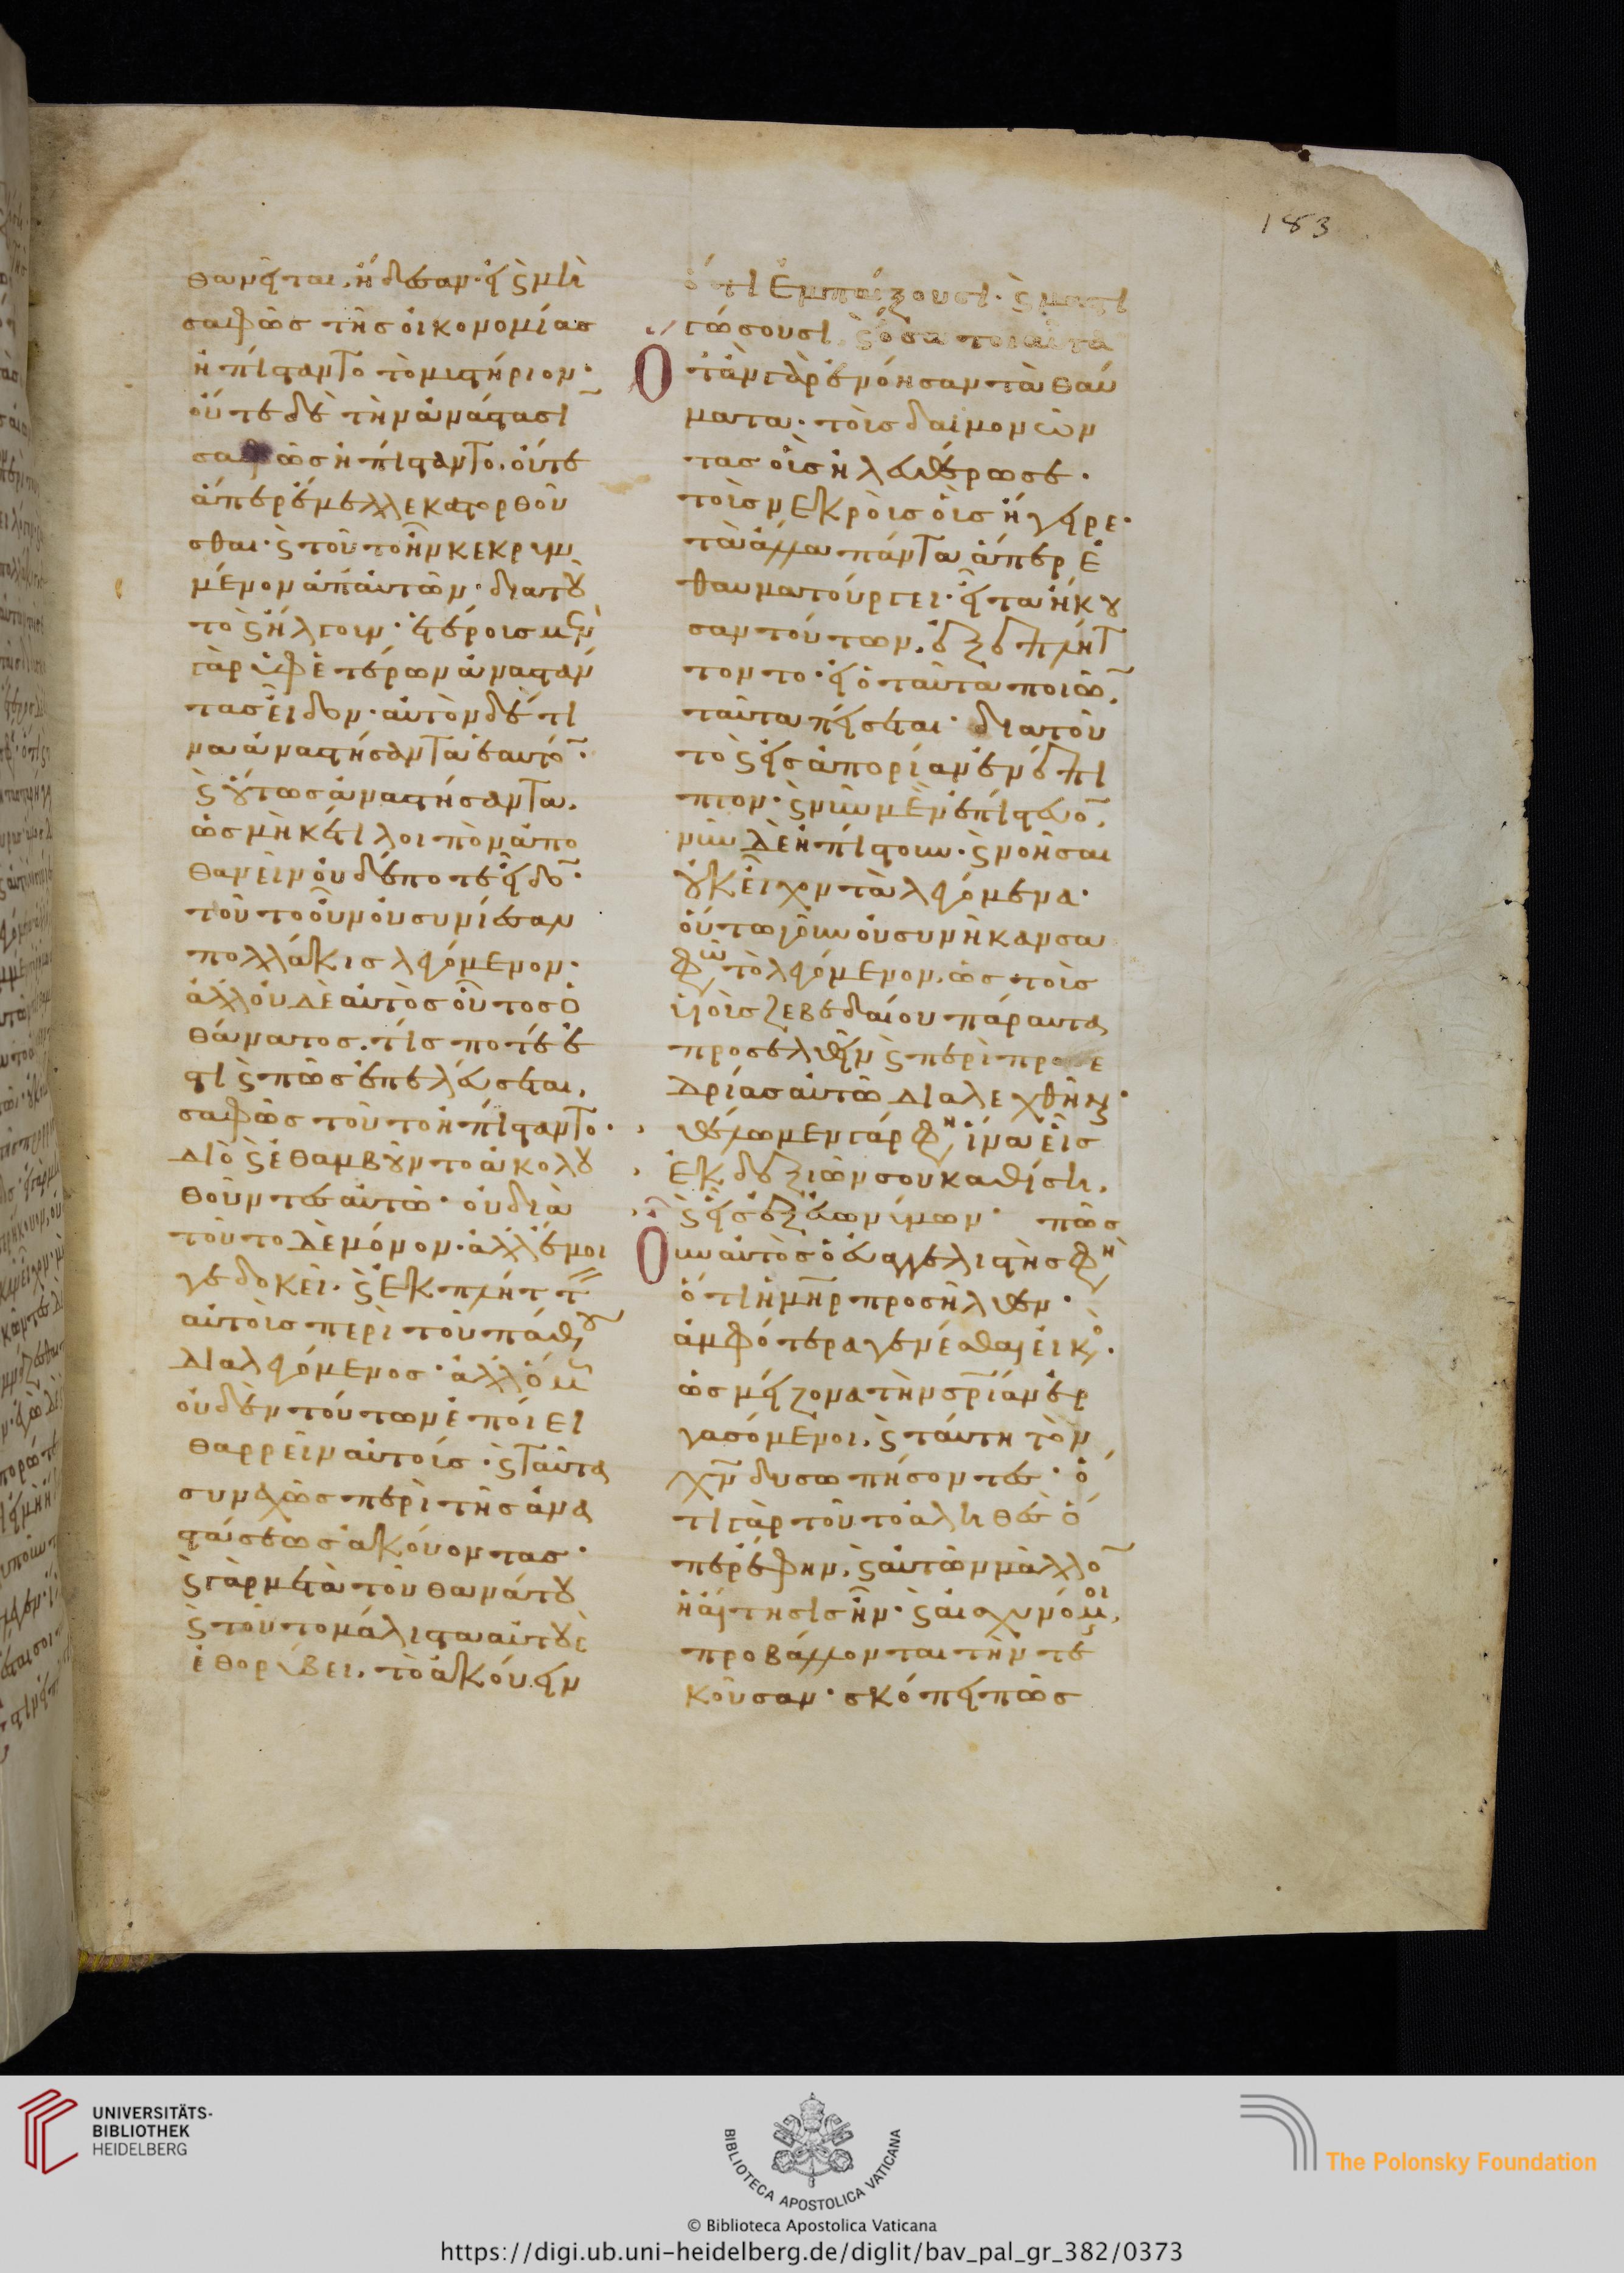 θανεῖται, ἤδεσαν· εἰ ϛ μὴ
σαφῶς τῆς οἰκονομίας
ἠπίσταντο τὸ μυστήριον·
οὔτε δὲ τὴν ἀνάστασῑ
σαφῶς ἠπίσταντο. οὔτε
ἅπερ ἔμελλε κατορθοῦ
σθαι· ϛ τοῦτο ἦν κεκρυμ
μένον ἀπ αὐτῶν· διατȣ
το ϛ ἤλγουν· ἑτέροις μὲν
γὰρ ὑφ ἑτέρων ἀναστάν
τας εἶδον· αὐτὸν δέ τι
να ἀναστήσαντα ἑαυτὸ̄·
ϛ ȣτως ἀναστήσαντα.
ὡς μὴκέτι λοιπὸν ἀπο
θανεῖν οὐδέποτε εἶδο̄·
τοῦτο οὖν οὐ συνίεσαν
πολλάκις λεγόμενον·
ἀλλ οὐδὲ αὐτὸς οὗτος ὁ
θάνατος. τίς ποτέ ἐ
στι ϛ πῶς ἐπελεύσεται.
σαφῶς τοῦτο ἠπίσταντο·
διὸ ϛ ἐθαμβȣντο ἀκολȣ
θοῦντες αὐτῶ· οὐ διὰ
τοῦτο δὲ μόνον· ἀλλ ἐμοι
γε δοκεῖ. ϛ ἐκπλήττ
αὐτοὺς περὶ τοῦ πάθȣ
διαλεγόμενος· ἀλλ ὅμ
οὐδὲν τούτων ἐποίει
θαρρεῖν αὐτούς· ϛ ταῦτα
συνεχῶς περὶ τῆς ἀνα
στάσεως ἀκούοντας·
ϛ γὰρ μετὰ τοῦ θανάτȣ
ϛ τοῦτο μάλιστα αὐτȣς
ἐθορύβει. τὸ ἀκούειν
ὅτι ἐμπαίζουσι· ϛ μαστι
γώσουσι. ϛ ὅσα τοιαῦτα
Ὅταν γὰρ ἐνόησαν τὰ θαύ
ματα· τοὺς δαιμονῶν
τας οὓς ἠλευθέρωσε·
τοὺς νεκροὺς οὓς ἤγειρε·
τὰ ἄλλα πάντα ἅπερ ἐ
θαυματούργει· εἶτα ἤκȣ
σαν τούτων. ἐξεπλήτ
τοντο· εἰ ὁ ταῦτα ποιῶ̄.
ταῦτα πείσεται· διατοῦ
το ϛ εἰς ἀπορίαν ἐνέπι
πτον· ϛ νῦν μὲν ἐπίστευο̄.
νῦν δὲ ἠπίστουν· ϛ νοῆσαι
ȣκ εἶχον τὰ λεγόμενα·
οὕτω γοῦν οὐ συνῆκαν σα
φῶς τὸ λεγόμενον. ὡς τοὺς
ὑιοὺς ζεβεδαίου πάραυτα
προσελθεῖν ϛ περὶ προε
δρίας αὐτῶ διαλεχθῆν·
θέλωμεν γάρ φη ἵνα εἷς
ἐκ δεξιῶν σου καθίση.
ϛ εἷς ἐξ εὐωνύμων· πῶς
Οὖν αὐτὸς ὁ εὐαγγελιστής φη
ὅτι ἡ μ̅η̅ρ προσῆλθεν·
ἀμφότερα γενέσθαι εἰκὸ·
ὡς μείζονα τὴν σ̅ρίαν ἐρ
γασόμενοι. ϛ ταύτη τὸν
χ̅ν δυσωπήσοντες· ὅ
τι γὰρ τοῦτο ἀληθὲς ὅ
περ ἔφην. ϛ αὐτῶν μᾶλλο̄
ἡ αἴτησις ἦν· ϛ αἰσχυνόμοι.
προβάλλονται τὴν τε
κοῦσαν· σκόπει πῶς
183
UNIVERSITÄTS-
BIBLIOTHEK
HEIDELBERG
BIBLIOTECA APOSTOLICA VATICANA
© Biblioteca Apostolica Vaticana
The Polonsky Foundation
https://digi.ub.uni-heidelberg.de/diglit/bav_pal_gr_382/0373